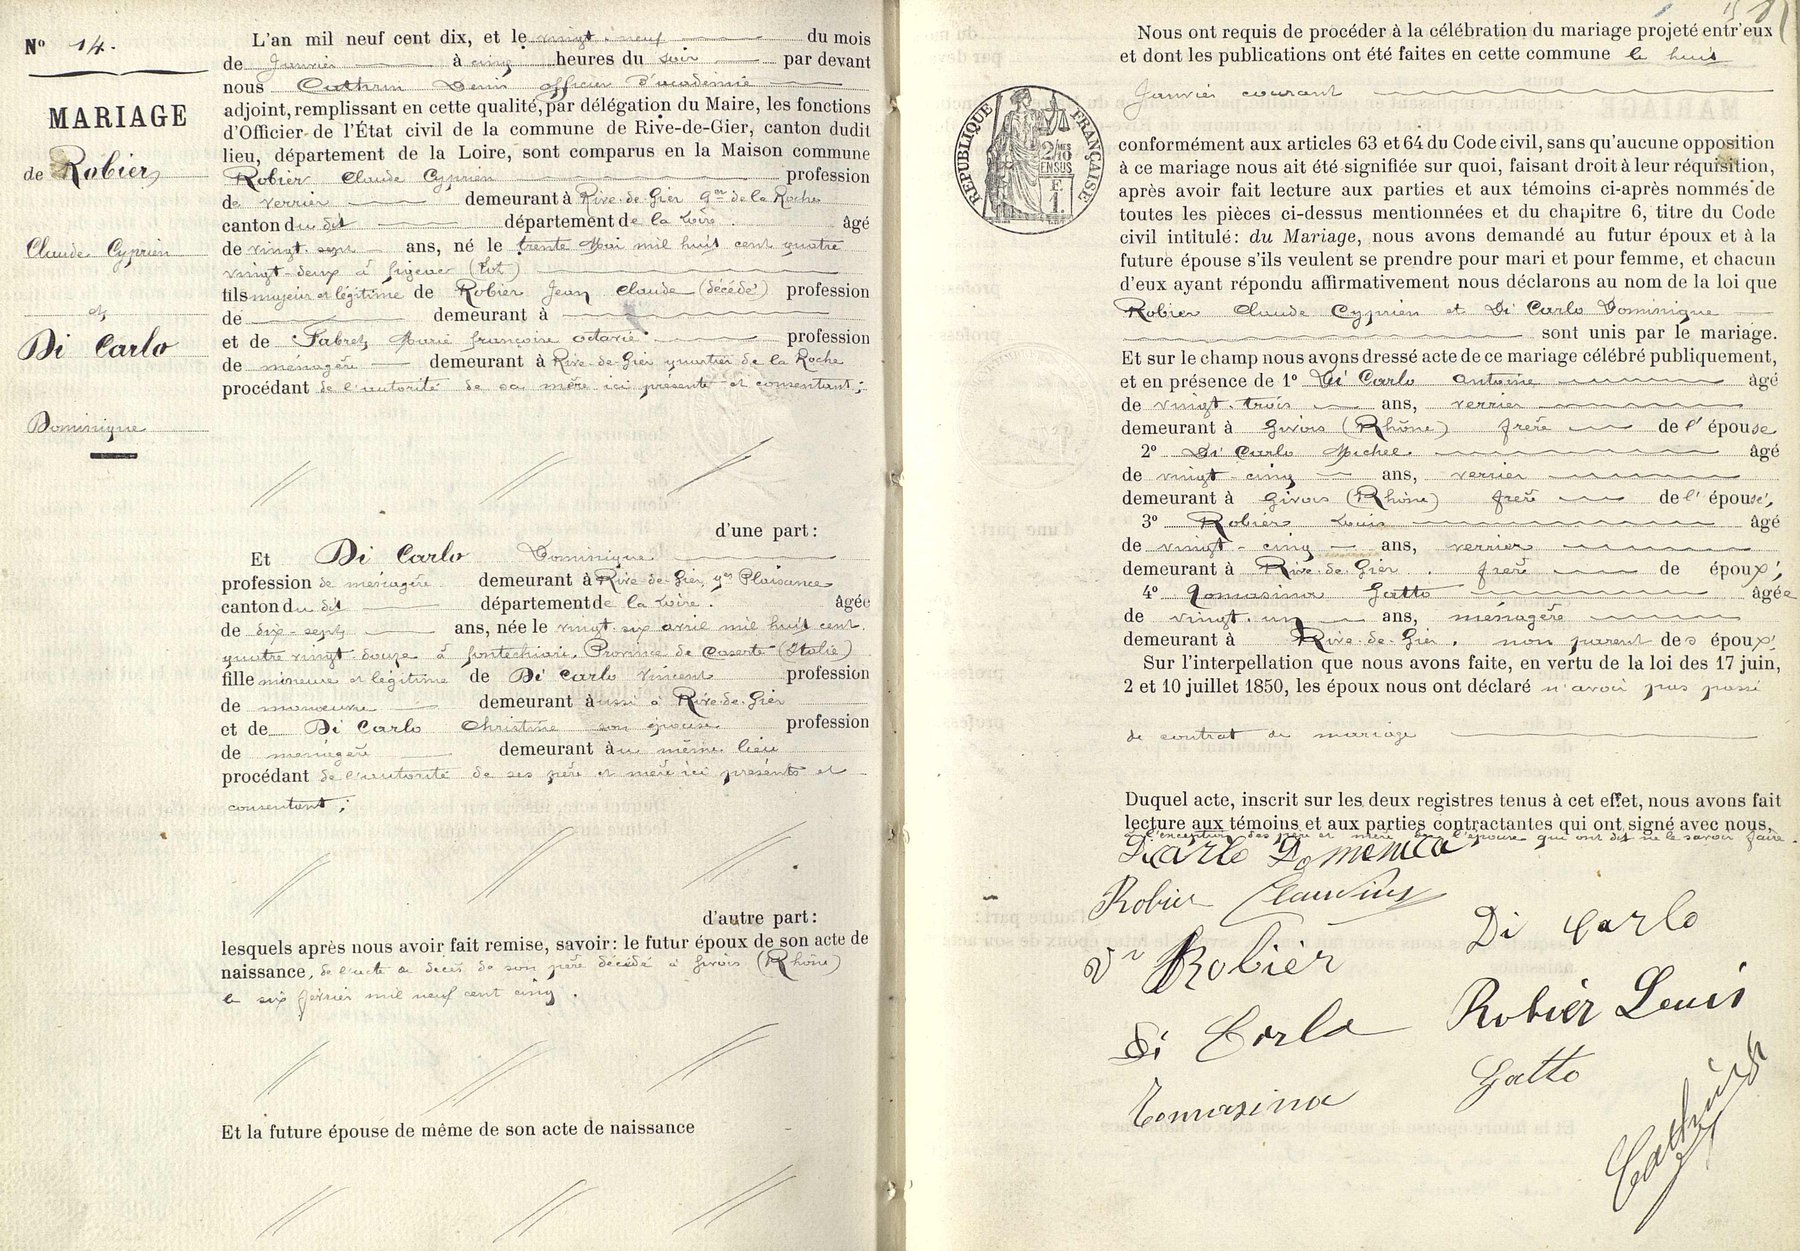 Nº 14.
MARIAGE
de Robier
Claude Cyprien
et
Di Carlo
Dominique
L'an mil neuf cent dix, et le vingt-neuf du mois
de Janvier à cinq heures du soir par devant
nous Cathrin Denis officier d'académie
adjoint, remplissant en cette qualité, par délégation du Maire, les fonctions
d'Officier de l'État civil de la commune de Rive-de-Gier, canton dudit
lieu, département de la Loire, sont comparus en la Maison commune
Robier Claude Cyprien profession
de verrier demeurant à Rive-de-Gier qer de la Roche
canton du dit département de la Loire. âgé
de vingt-sept ans, né le trente Mai mil huit cent quatre
vingt-deux à figeac (Lot)
fils majeur et légitime de Robier Jean Claude (décédé) profession
de demeurant à
et de Fabre Marie françoise octavie profession
de ménagère demeurant à Rive-de-Gier quartier de la Roche
procédant de l'autorité de sa mère ici présente et consentant;
d'une part:
Et Di Carlo Dominique
profession de ménagère demeurant à Rive-de-Gier, qer Plaisance
canton du dit département de la Loire. âgée
de dix-sept ans, née le vingt-six avril mil huit cent
quatre vingt douze à fontechiari, Province de Caserte (Italie)
fille mineure et légitime de Di Carlo Vincent profession
de manœuvre demeurant aussi à Rive-de-Gier
et de Di Carlo Christine son épouse profession
de ménagère demeurant au même lieu
procédant de l'autorité de ses père et mère ici présents et
consentant;
d'autre part:
lesquels après nous avoir fait remise, savoir: le futur époux de son acte de
naissance, de l'acte de décès de son père décédé à Givors (Rhône)
le six février mil neuf cent cinq.
Et la future épouse de même de son acte de naissance
Nous ont requis de procéder à la célébration du mariage projeté entr'eux
et dont les publications ont été faites en cette commune le huit
Janvier courant
RÉPUBLIQUE FRANÇAISE
2/10 EN SUS
F.
1.
conformément aux articles 63 et 64 du Code civil, sans qu'aucune opposition
à ce mariage nous ait été signifiée sur quoi, faisant droit à leur réquisition,
après avoir fait lecture aux parties et aux témoins ci-après nommés de
toutes les pièces ci-dessus mentionnées et du chapitre 6, titre du Code
civil intitulé: du Mariage, nous avons demandé au futur époux et à la
future épouse s'ils veulent se prendre pour mari et pour femme, et chacun
d'eux ayant répondu affirmativement nous déclarons au nom de la loi que
Robier Claude Cyprien et Di Carlo Dominique
sont unis par le mariage.
Et sur le champ nous avons dressé acte de ce mariage célébré publiquement,
et en présence de 1º Di Carlo Antoine âgé
de vingt-trois ans, verrier
demeurant à Givors (Rhône) frère de l'épouse
2º Di Carlo Michel âgé
de vingt cinq ans, verrier
demeurant à Givors (Rhône) frère de l'épouse,
3º Robier Louis âgé
de vingt-cinq ans, verrier
demeurant à Rive-de-Gier. frère de époux,
4º Tomasina Gatto âgée
de vingt-un ans, ménagère
demeurant à Rive-de-Gier. non parent des époux.
Sur l'interpellation que nous avons faite, en vertu de la loi des 17 juin,
2 et 10 juillet 1850, les époux nous ont déclaré n'avoir pas passé
de contrat de mariage
Duquel acte, inscrit sur les deux registres tenus à cet effet, nous avons fait
lecture aux témoins et aux parties contractantes qui ont signé avec nous,
à l'exception des père et mère de l'épouse qui ont dit ne le savoir faire.
Dicarlo Domenica
Robier Claudius
Di Carlo
Vve Robier
Robier Louis
Di Corlo
Gatto
Tomasina
Cathrin